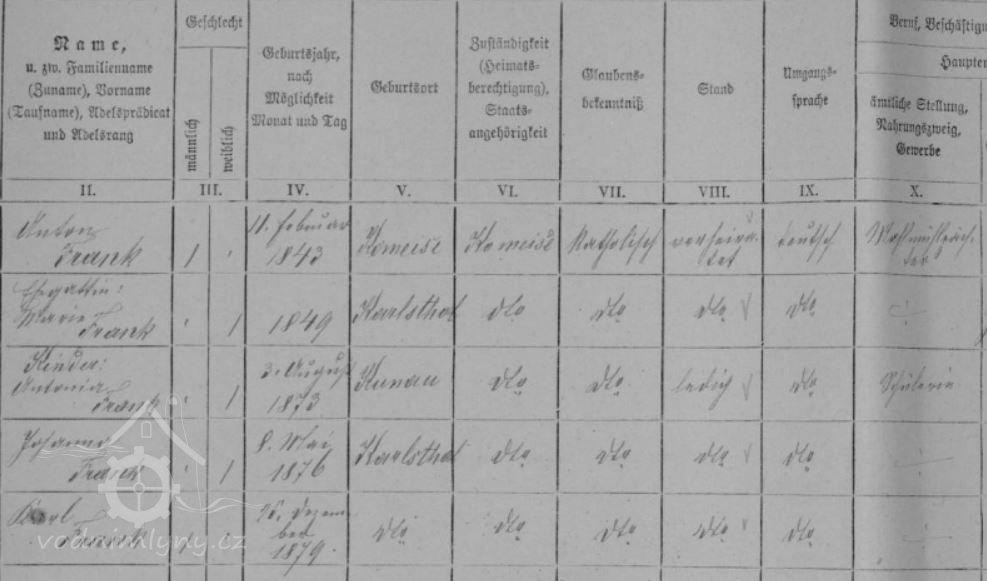 Name,
u. zw. Familienname
(Zuname), Vorname
(Taufname), Adelsprädicat
und Adelsrang
Geschlecht
männlich
weiblich
Geburtsjahr,
nach
Möglichkeit
Monat und Tag
Geburtsort
Zuständigkeit
(Heimats-
berechtigung),
Staats-
angehörigkeit
Glaubens-
bekenntniß
Stand
Umgangs-
sprache
Beruf, Beschäftigu
Haupter
ämtliche Stellung,
Nahrungszweig,
Gewerbe
II. III. IV. V. VI. VII. VIII. IX. X.
Anton
Frank
1
11. Februar
1843
Komeise
Komeise
Katholisch
verheira-
tet
deutsch
Ehegattin:
Marie
Frank
1
1849
Karlsthal
dto
dto
dto
dto
Kinder:
Antonia
Frank
1
3. August
1873
Kunau
dto
dto
ledig
dto
Schülerin
Johanna
Frank
1
8. Mai
1876
Karlsthal
dto
dto
dto
dto
Karl
Frank
Dezem-
ber
1879
dto
dto
dto
dto
dto
vodnimlyny.cz